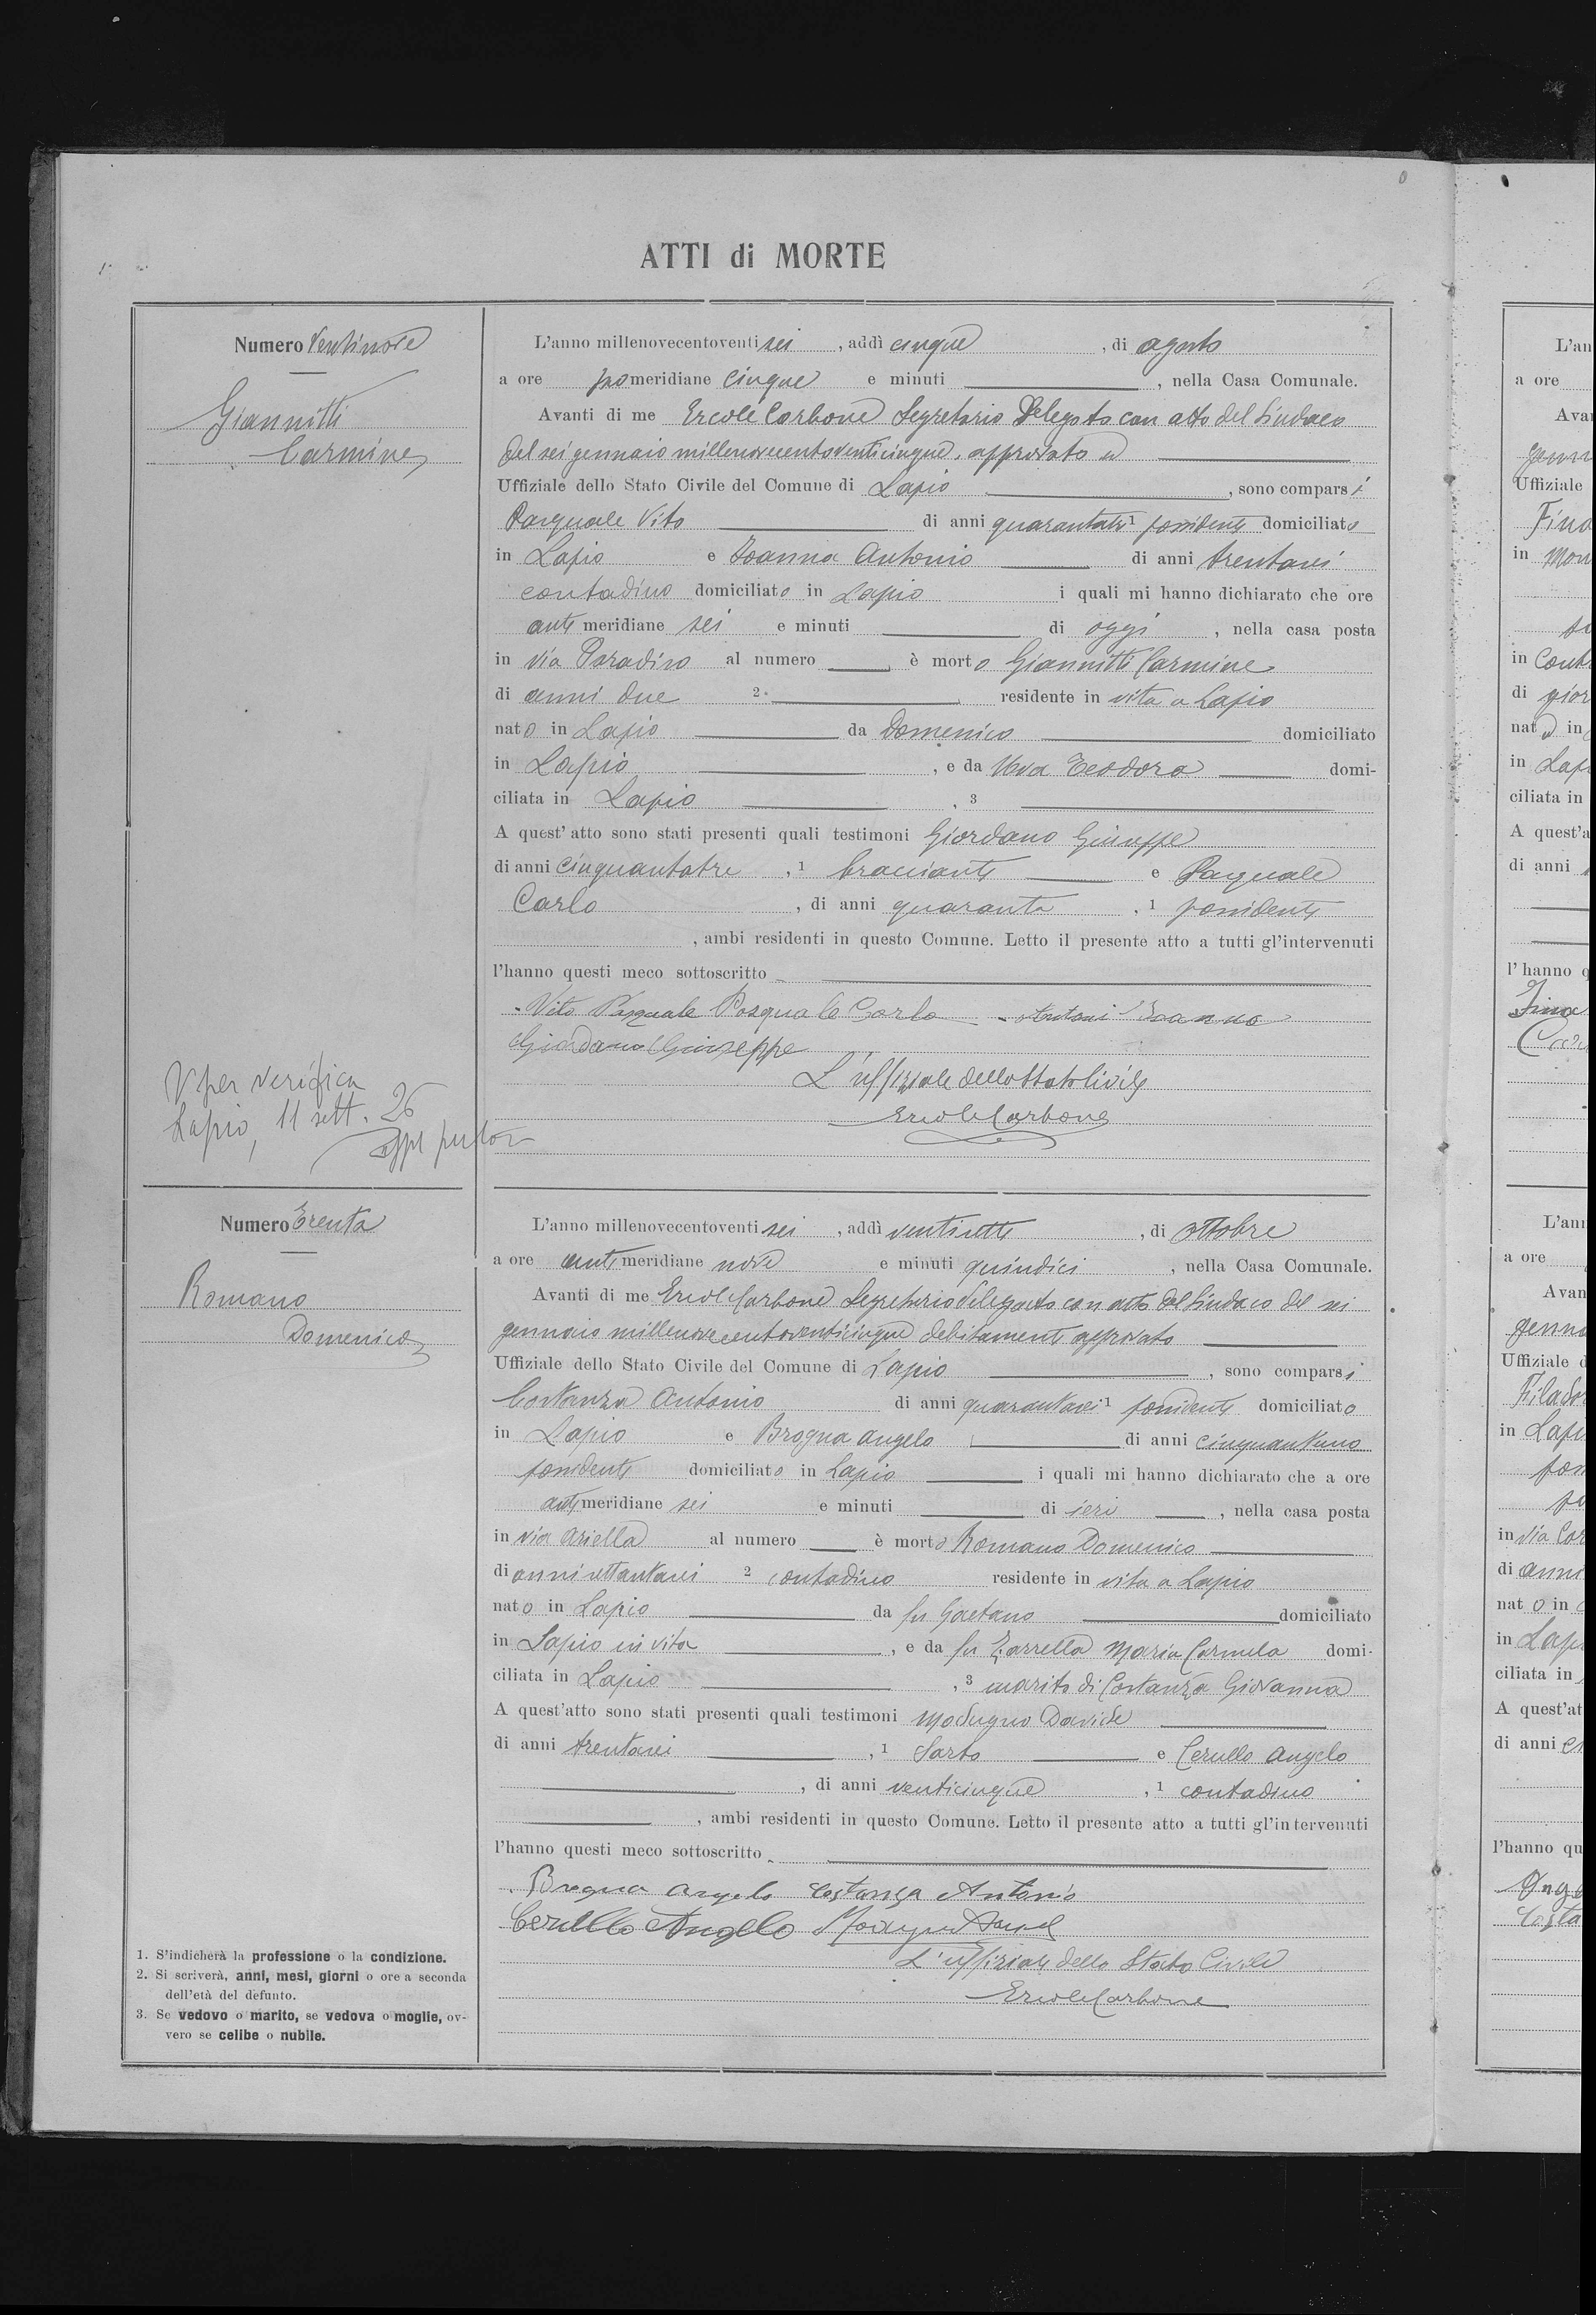 ATTI di MORTE
Numero Ventinove
Giannitti
Carmine
V per verifica
Lapio, 11 sett. 26
L'anno millenovecentoventi sei, addì cinque, di agosto
a ore pomeridiane cinque e minuti, nella Casa Comunale.
Avanti di me Ercole Carbone Segretario Delegato con atto del Sindaco
del sei gennaio millenovecentoventicinque, approvato
Uffiziale dello Stato Civile del Comune di Lapio, sono comparsi
Pasquale Vito di anni quarantatre 1 possidente domiciliato
in Lapio e Ioanna Antonio di anni trentasei
contadino domiciliato in Lapio i quali mi hanno dichiarato che ore
antimeridiane sei e minuti di oggi, nella casa posta
in via Paradiso al numero, è morto Giannitti Carmine
di anni due 2. residente in vita a Lapio
nato in Lapio da Domenico domiciliato
in Lapio, e da Uva Teodora domi-
ciliata in Lapio, 3
A quest'atto sono stati presenti quali testimoni Giordano Giuseppe
di anni cinquantatre, 1 bracciante e Pasquale
Carlo, di anni quaranta, 1 possidente
, ambi residenti in questo Comune. Letto il presente atto a tutti gl'intervenuti
l'hanno questi meco sottoscritto
Vito Pasquale Pasquale Carlo Antoni Ioanna
Giordano Giuseppe
L'uffiziale dello Stato Civile
Ercole Carbone
Numero Trenta
Romano
Domenico
L'anno millenovecentoventi sei, addì ventisette, di ottobre
a ore antimeridiane nove e minuti quindici, nella Casa Comunale.
Avanti di me Ercole Carbone Segretario delegato con atto del Sindaco del sei
gennaio millenovecentoventicinque debitamente approvato
Uffiziale dello Stato Civile del Comune di Lapio, sono comparsi
Costanza Antonio di anni quarantasei 1 possidente domiciliato
in Lapio e Brogna Angelo di anni cinquantuno
possidente domiciliato in Lapio i quali mi hanno dichiarato che a ore
antimeridiane sei e minuti di ieri, nella casa posta
in via Ariella al numero è morto Romano Domenico
di anni settantasei 2 contadino residente in vita a Lapio
nato in Lapio da fu Gaetano domiciliato
in Lapio in vita, e da fu Zarrella Maria Carmela domi-
ciliata in Lapio, 3 marito di Costanza Giovanna
A quest'atto sono stati presenti quali testimoni Modugno Davide
di anni trentasei, 1 Sarto e Cerullo Angelo
, di anni venticinque, 1 contadino
, ambi residenti in questo Comune. Letto il presente atto a tutti gl'intervenuti
l'hanno questi meco sottoscritto
Brogna Angelo Costanza Antonio
Cerullo Angelo
L'uffiziale dello Stato Civile
Ercole Carbone
1. S'indicherà la professione o la condizione.
2. Si scriverà, anni, mesi, giorni o ore a seconda
dell'età del defunto.
3. Se vedovo o marito, se vedova o moglie, ov-
vero se celibe o nubile.
L'an
a ore
Uffiziale
in
in
di
nat in
in
ciliata in
A quest'a
di anni
l'hanno q
L'ann
a ore
Avan
Uffiziale d
in
in via
di anni
nat o in
in
ciliata in
A quest'at
di anni
l'hanno qu